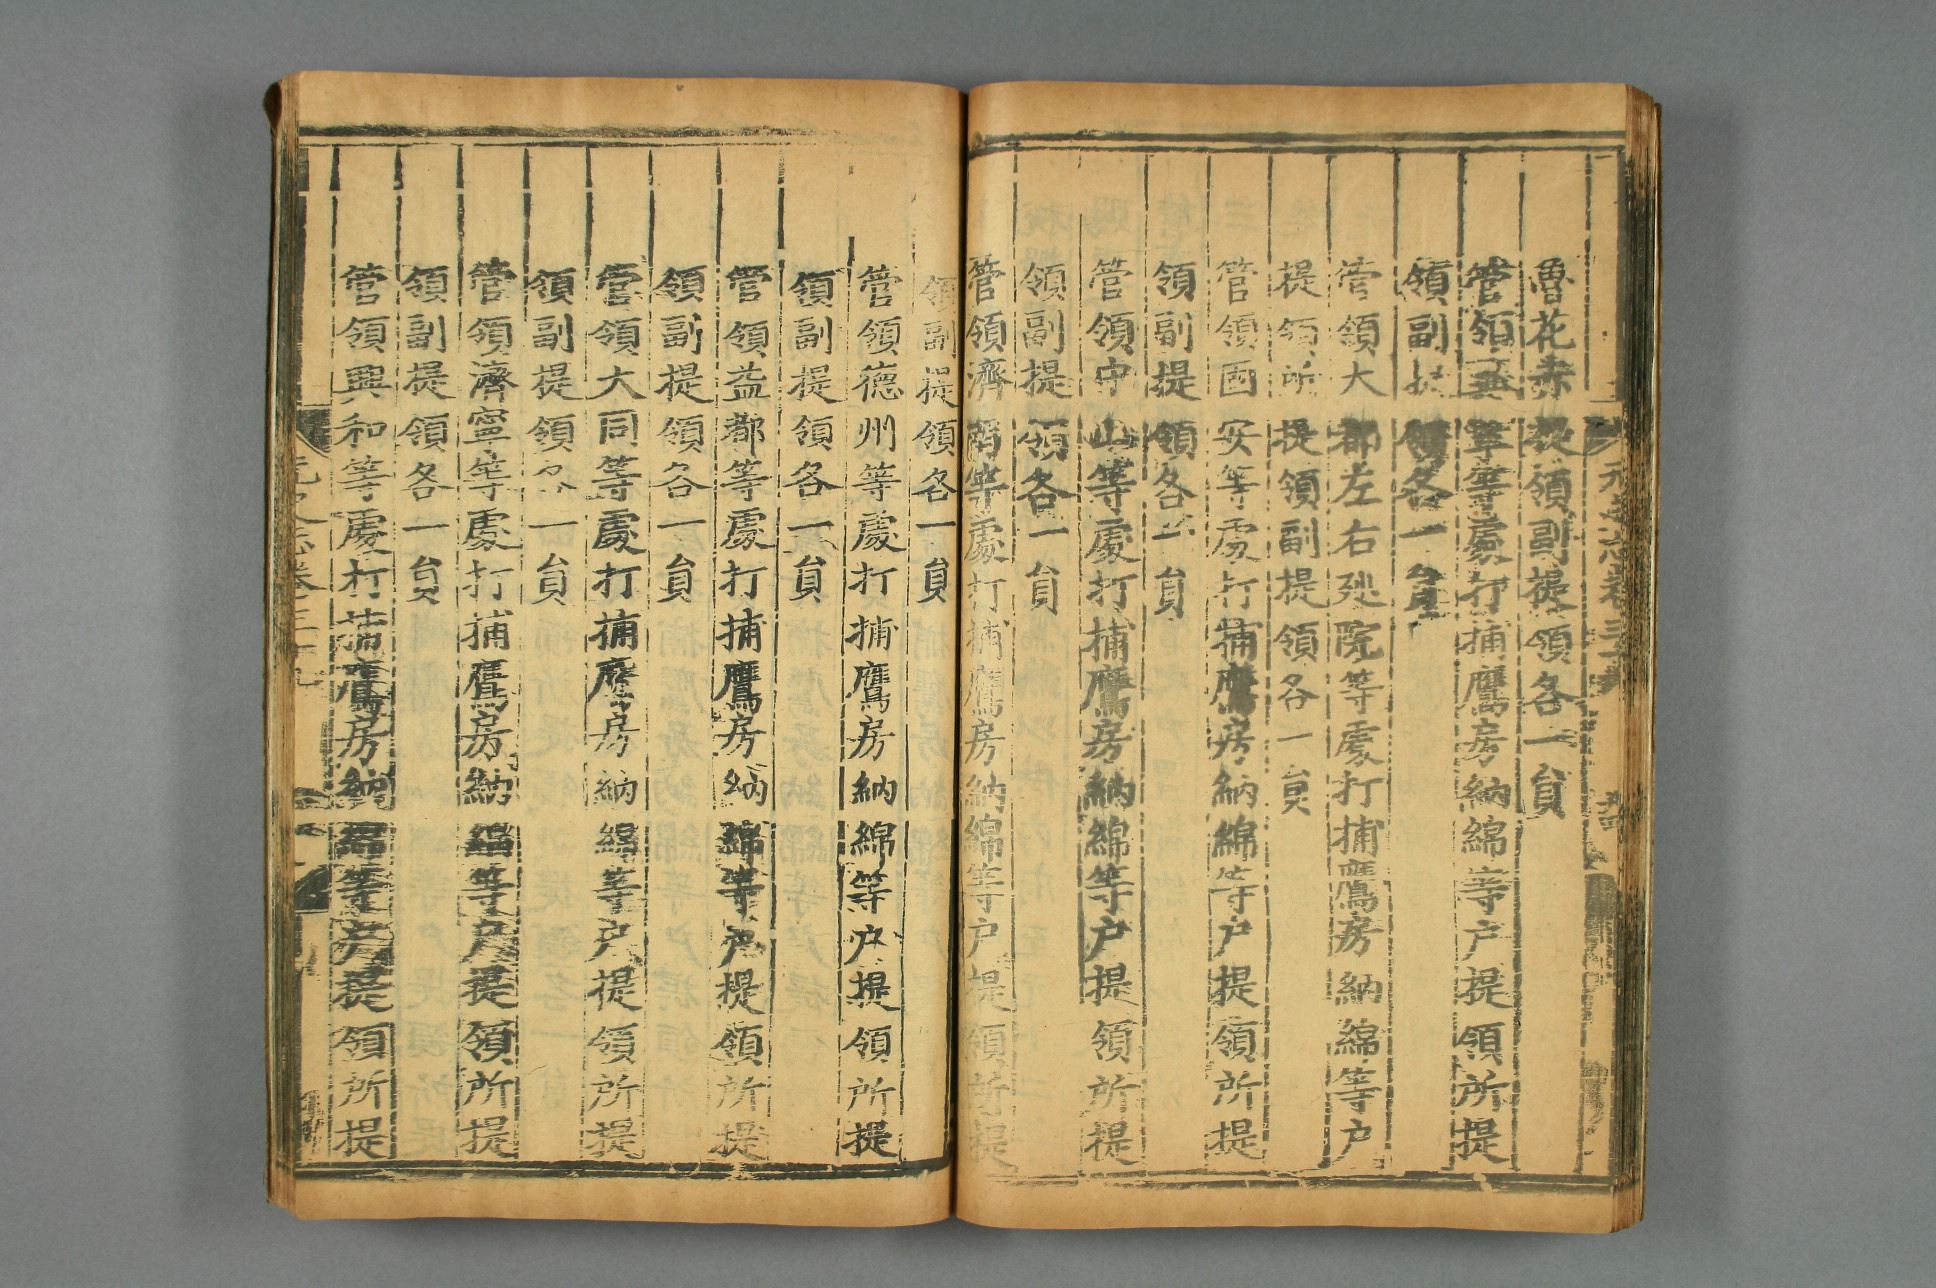 魯花赤提領副提領各一員
管領冀寧等處打捕鷹房納綿等户提領所提
領副提領各一員
管領大都左右廵院等處打捕鷹房納綿等户
提領所提領副提領各一員
管領固安等處打捕鷹房納綿等户提領所提
領副提領各一員
管領中山等處打捕鷹房納綿等户提領所提
領副提領各一員
管領濟南等處打捕鷹房納綿等户提領所提
領副提領各一員
管領德州等處打捕鷹房納綿等户提領所提
領副提領各一員
管領益都等處打捕鷹房納綿等户提領所提
領副提領各一員
管領大同等處打捕鷹房納綿等户提領所提
領副提領各一員
管領濟寧等處打捕鷹房納綿等户提領所提
領副提領各一員
管領興和等處打捕鷹房納綿等户提領所提
元史志卷三十九